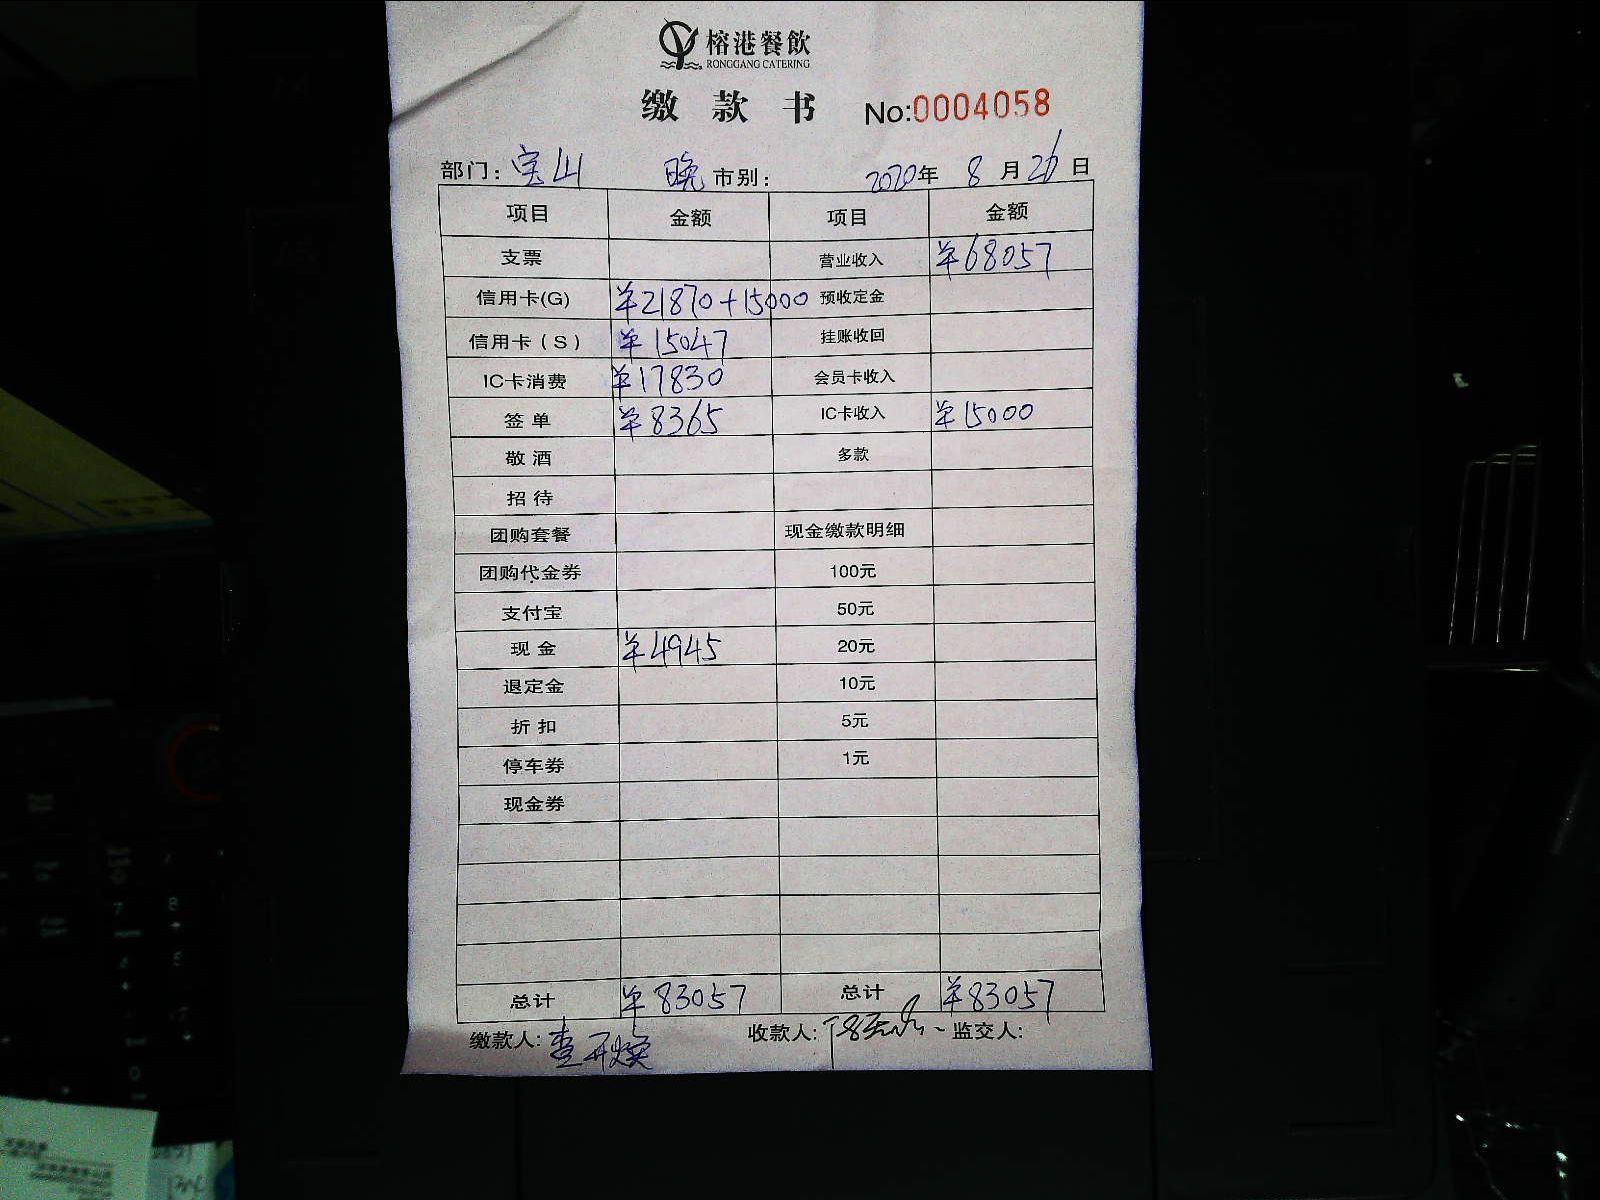 榕港餐飲
RONGGANG CATERING
缴款书 No:0004058
部门：宝山 晚市别： 2020年 8月26日
项目 金额 项目 金额
支票 营业收入 ¥68057
信用卡(G) ¥21870+15000 预收定金
信用卡（S） ¥15047 挂账收回
IC卡消费 ¥17830 会员卡收入
签单 ¥8365 IC卡收入 ¥15000
敬酒 多款
招待
团购套餐 现金缴款明细
团购代金券 100元
支付宝 50元
现金 ¥4945 20元
退定金 10元
折扣 5元
停车券 1元
现金券
总计 ¥83057 总计 ¥83057
缴款人: 收款人: 监交人: